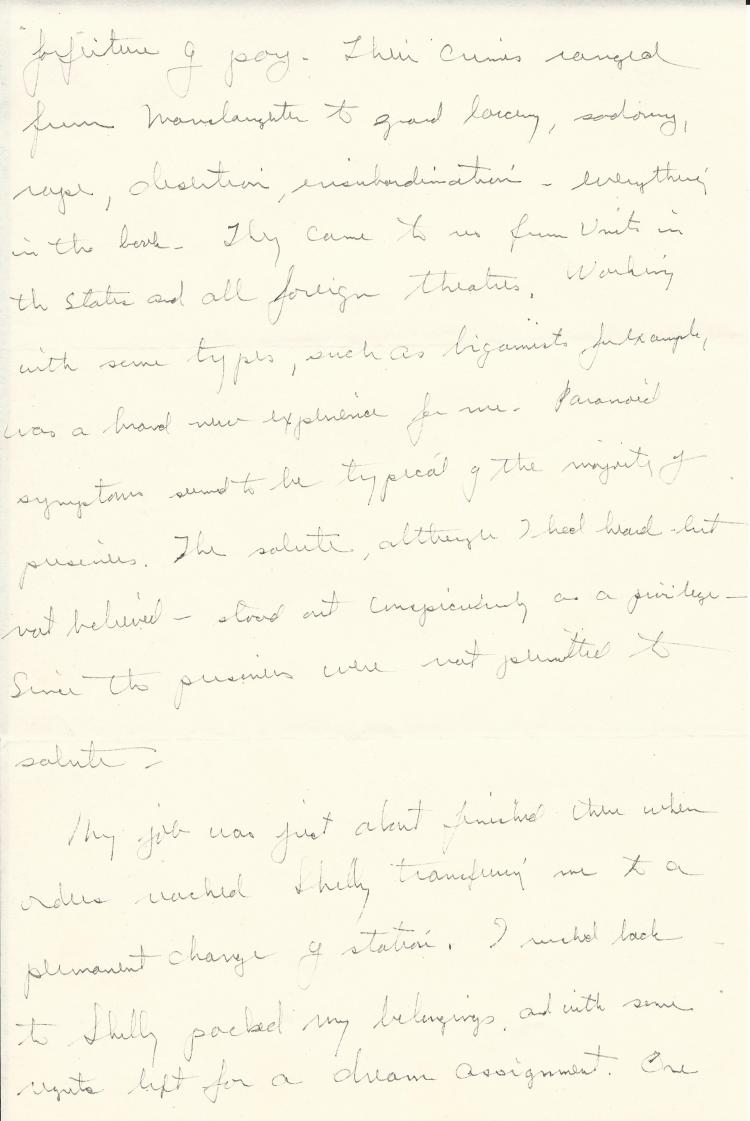 forfeiture of pay. Their crimes ranged
from Manslaughter to grand larceny, sodomy,
rape, desertion, insubordination - everything
in the book - They came to us from Units in
the States and all foreign theatres. Working
with some types, such as bigamists for example,
was a brand new experience for me. Paranoid
symptoms seemed to be typical of the majority of
prisoners. The salute, although I had heard - but
not believed - stood out conspicuously as a privilege -
Since the prisoners were not permitted to
salute -
My job was just about finished there when
orders reached Shelby transferring me to a
permanent change of station. I rushed back
to Shelby packed my belongings, and with some
regrets left for a dream assignment. One